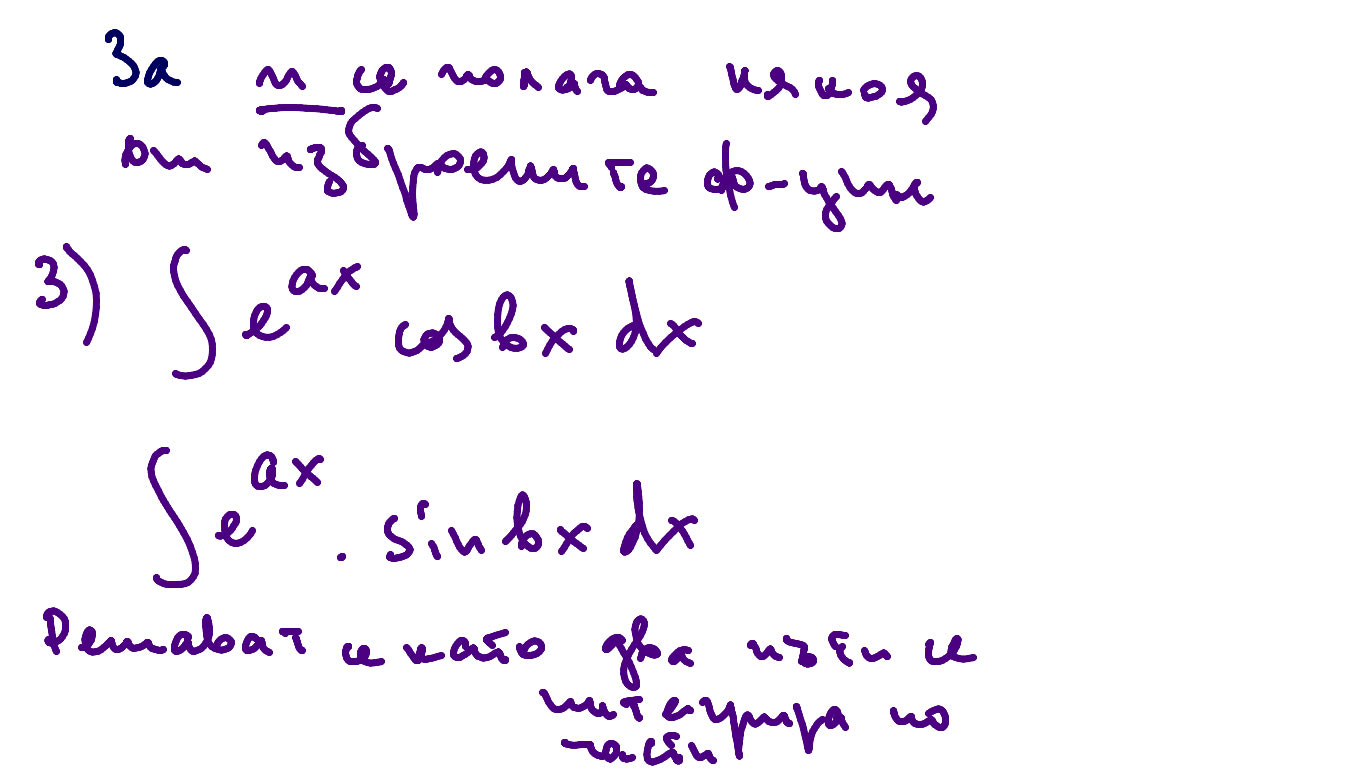 За u се полага някоя
от изброените ф-ции
3) ∫ e^{ax} cos bx dx
∫ e^{ax} . sin bx dx
Решават се като два пъти се
интегрира по
части